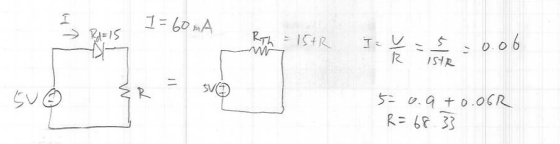 I → R_d=15
I=60mA
5V
R
=
R_Th = 15+R
5V
I = V/R = 5/(15+R) = 0.06
5 = 0.9 + 0.06R
R = 68.33